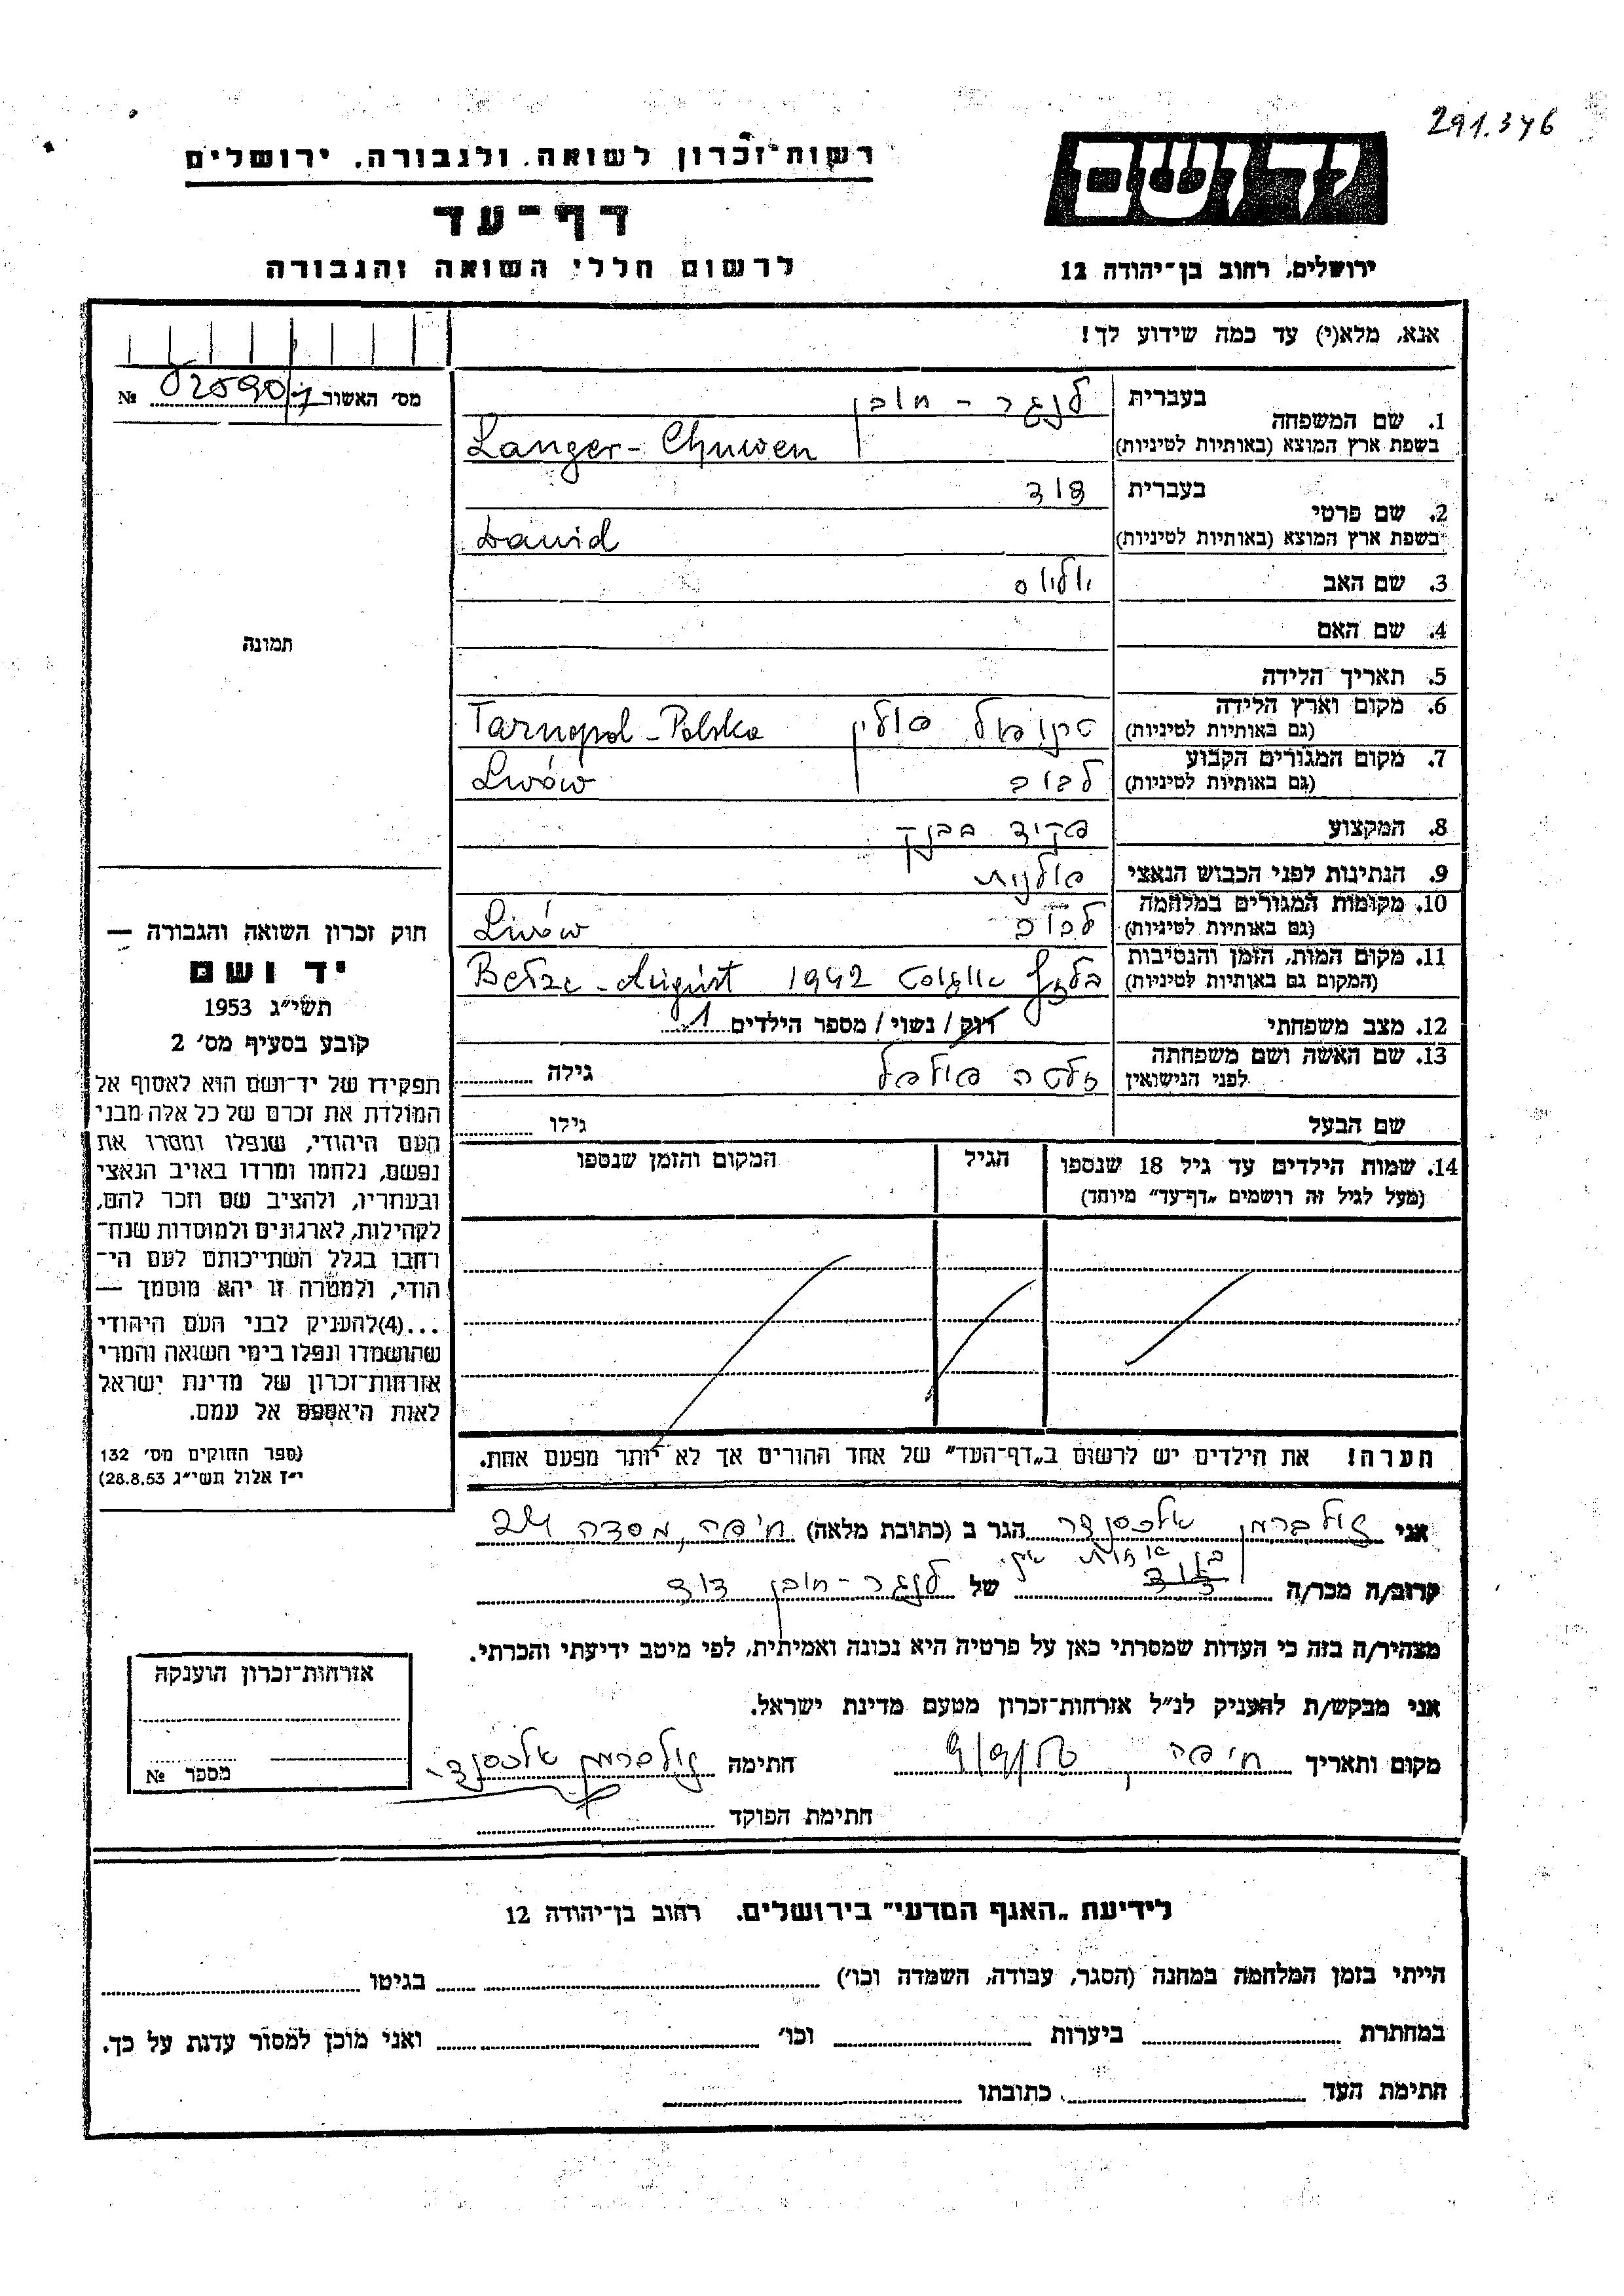 291.346
יד ושם
רשות־זכרון לשואה ולגבורה, ירושלים
דף־עד
לרשום חללי השואה והגבורה
ירושלים, רחוב בן־יהודה 12
אנא, מלא(י) עד כמה שידוע לך!
מס׳ האשור № 02590
תמונה
1. שם המשפחה בעברית לנגר - חובן
בשפת ארץ המוצא (באותיות לטיניות) Langer - Chuwen
2. שם פרטי בעברית דוד
בשפת ארץ המוצא (באותיות לטיניות) Dawid
3. שם האב יוליוס
4. שם האם
5. תאריך הלידה
6. מקום וארץ הלידה טרנופול פולין Tarnopol - Polska
(גם באותיות לטיניות)
7. מקום המגורים הקבוע לבוב Lwów
(גם באותיות לטיניות)
8. המקצוע פקיד בבנק
9. הנתינות לפני הכבוש הנאצי פולנית
10. מקומות המגורים במלחמה לבוב Lwów
(גם באותיות לטיניות)
11. מקום המות, הזמן והנסיבות אוגוסט 1942 August
(המקום גם באותיות לטיניות)
12. מצב משפחתי רוק / נשוי / מספר הילדים 1
13. שם האשה ושם משפחתה
לפני הנישואין גילה
שם הבעל גילו
14. שמות הילדים עד גיל 18 שנספו הגיל המקום והזמן שנספו
(מעל לגיל זה רושמים „דף־עד״ מיוחד)
הערה! את הילדים יש לרשום ב„דף־העד״ של אחד ההורים אך לא יותר מפעם אחת.
חוק זכרון השואה והגבורה —
יד ושם
תשי״ג 1953
קובע בסעיף מס׳ 2
תפקידו של יד־ושם הוא לאסוף אל
המולדת את זכרם של כל אלה מבני
העם היהודי, שנפלו ומסרו את
נפשם, נלחמו ומרדו באויב הנאצי
ובעוזריו, ולהציב שם וזכר להם,
לקהילות, לארגונים ולמוסדות שנח־
רחבו בגלל השתייכותם לעם הי־
הודי, ולמטרה זו יהא מוסמך —
...(4) להעניק לבני העם היהודי
שהושמדו ונפלו בימי השואה והמרי
אזרחות־זכרון של מדינת ישראל
לאות היאספם אל עמם.
(ספר החוקים מס׳ 132
י״ז אלול תשי״ג 28.8.53)
אני זילברמן אלכסנדר הגר ב (כתובת מלאה) חיפה, מסדה
בן אחות של
קרוב/ה מכר/ה דוד של לנגר - חובן דוד
מצהיר/ה בזה כי העדות שמסרתי כאן על פרטיה היא נכונה ואמיתית, לפי מיטב ידיעתי והכרתי.
אני מבקש/ת להעניק לנ״ל אזרחות־זכרון מטעם מדינת ישראל.
מקום ותאריך חיפה, חתימה זילברמן אלכסנדר
חתימת הפוקד
אזרחות־זכרון הוענקה
מספר №
לידיעת „האגף המדעי״ בירושלים, רחוב בן־יהודה 12
הייתי בזמן המלחמה במחנה (הסגר, עבודה, השמדה וכו׳) בגיטו
במחתרת ביערות וכו׳ ואני מוכן למסור עדות על כך.
חתימת העד כתובתו